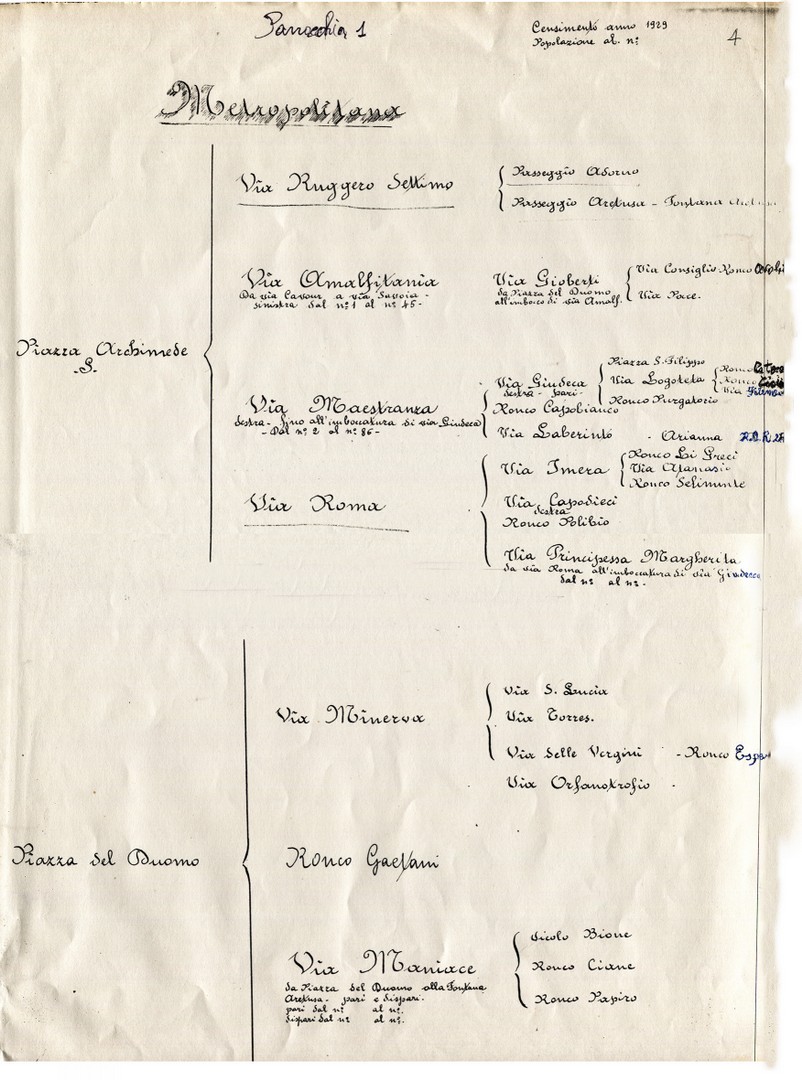 Parrocchia 1
Censimento anno 1929
Popolazione al. nº
4
Metropolitana
Via Ruggero Settimo
Passeggio Adorno
Passeggio Aretusa - Fontana
Piazza Archimede
S.
Via Amalfitania
Da via Cavour a via Savoia -
sinistra dal nº 1 al nº 45 -
Via Gioberti
da Piazza del Duomo
all'imbocco di via Amalf.
Via Consiglio Ronco
Via Pace.
Via Maestranza
destra - fino all'imboccatura di via Giudeca
- Dal nº 2 al nº 86 -
Via Giudeca
destra - pari -
Piazza S. Filippo
Via Logoteta
Ronco
Ronco
Via
Ronco Purgatorio
Ronco Capobianco
Via Laberinto - Arianna
Via Roma
Via Imera
Ronco Li Greci
Via Atanasio
Ronco Selinunte
Via Capodieci
destra
Ronco Polibio
Via Principessa Margherita
da via Roma all'imboccatura di via Giudecca
dal nº al nº -
Piazza del Duomo
Via Minerva
Via S. Lucia
Via Torres.
Via delle Vergini - Ronco
Via Orfanotrofio -
Ronco Gaetani
Via Maniace
da Piazza del Duomo alla Fontana
Aretusa - pari e dispari.
pari dal nº al nº.
dispari dal nº al nº.
Vicolo Bione
Ronco Ciane
Ronco Papiro